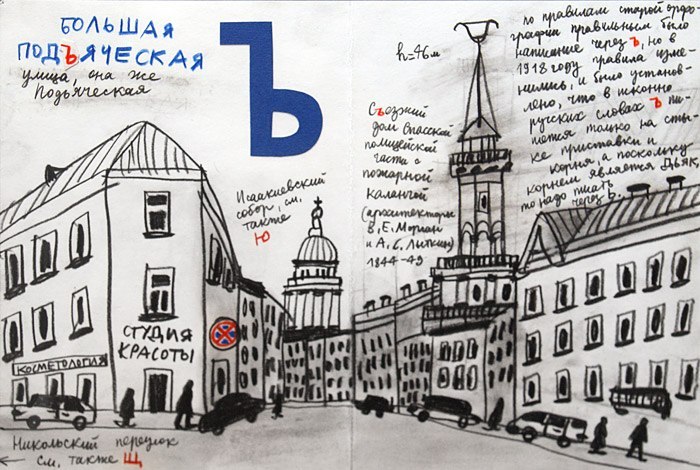 БОЛЬШАЯ
ПОДЪЯЧЕСКАЯ
улица, она же
Подьяческая
Ъ
h=46м
по правилам старой орфо-
графии правильным было
написание через Ъ, но в
1918 году правила изме-
нились, и было установ-
лено, что в исконно
русских словах Ъ пи-
шется только на сты-
ке приставки и
корня, а поскольку
корнем является ДЬЯК,
то надо писать
через Ь.
Съезжий
дом Спасской
полицейской
части с
пожарной
каланчой
(архитекторы
В.Е. Морган
и А.С. Литкин)
1844-49
Исаакиевский
собор, см.
также
Ю
СТУДИЯ
КРАСОТЫ
КОСМЕТОЛОГИЯ
Никольский переулок
← см. также Щ